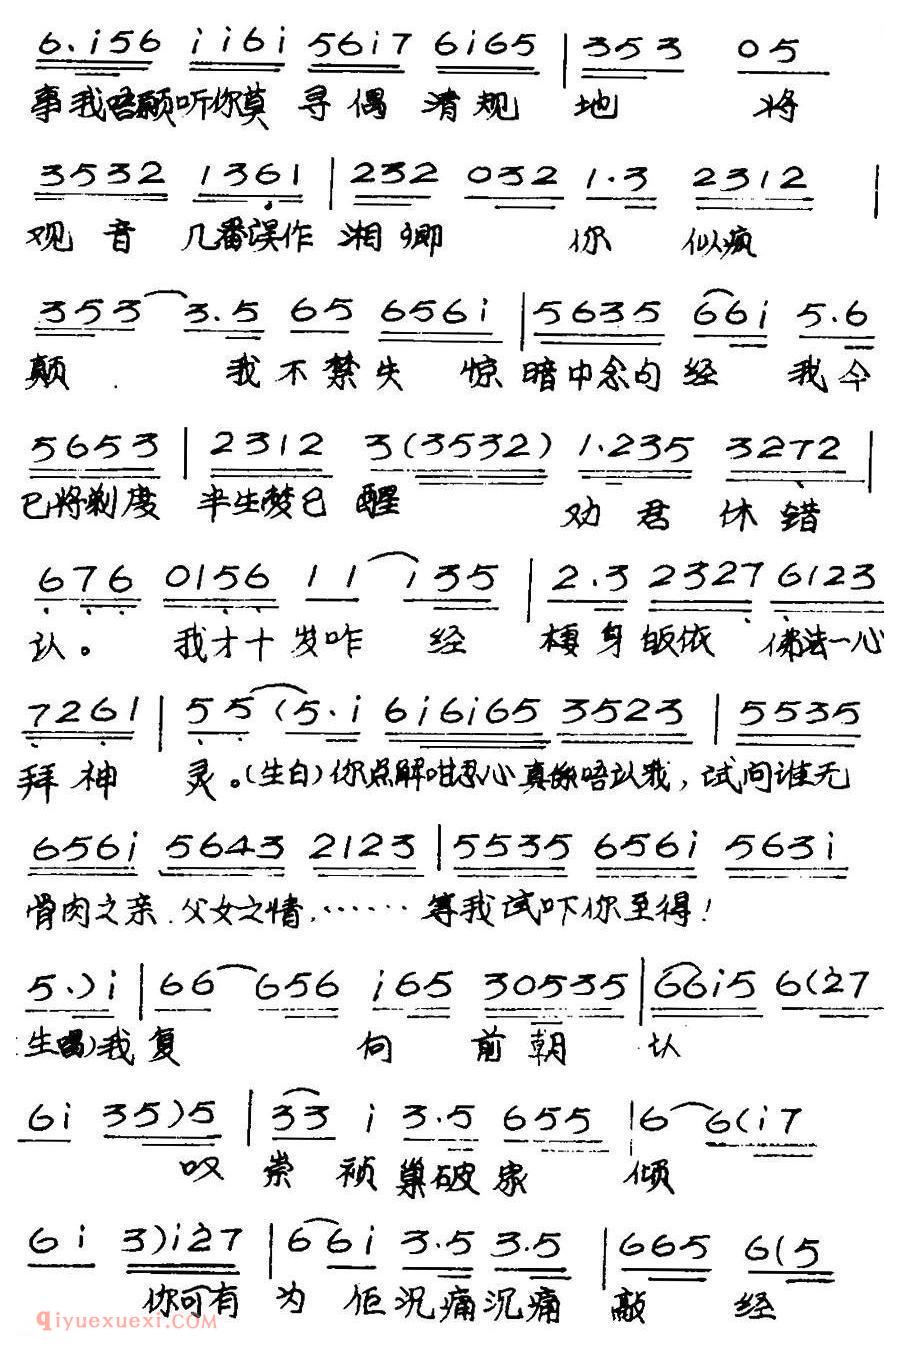 6.i56 i i6i 56i7 6i65 | 353 05
事我唔願听你莫 寻偶 清规 地 将
3532 1361 | 232 032 1.3 2312 |
观音 几番误作 湘卿 你 似疯
353 3.5 65 656i | 5635 66i 5.6
颠. 我不禁失 惊 暗中念句经 我今
5653 | 2312 3(3532) 1.235 3272 |
已将剃度 半生梦已 醒 劝君 休错
676 0156 11 135 | 2.3 2327 6123
认。 我才十岁咋 经 棲身皈依 佛法一心
7261 | 55(5.i 6i6i65 3523 | 5535
拜神 灵。(生白)你点解咁忍心真係唔认我, 试问谁无
656i 5643 2123 | 5535 656i 563i
骨肉之亲.父女之情,…… 等我试吓你至得!
5.)i | 66 656 i65 30535 | 66i5 6(27
生唱)我复 向 前朝 认
6i 35)5 | 33 i 3.5 655 | 6 6(i7
叹 崇 祯 巢破家 倾
6i 3)i27 | 66i 3.5 3.5 | 665 6(5
你可有 为 佢沉痛沉痛 敲 经
qiyuexuexi.com